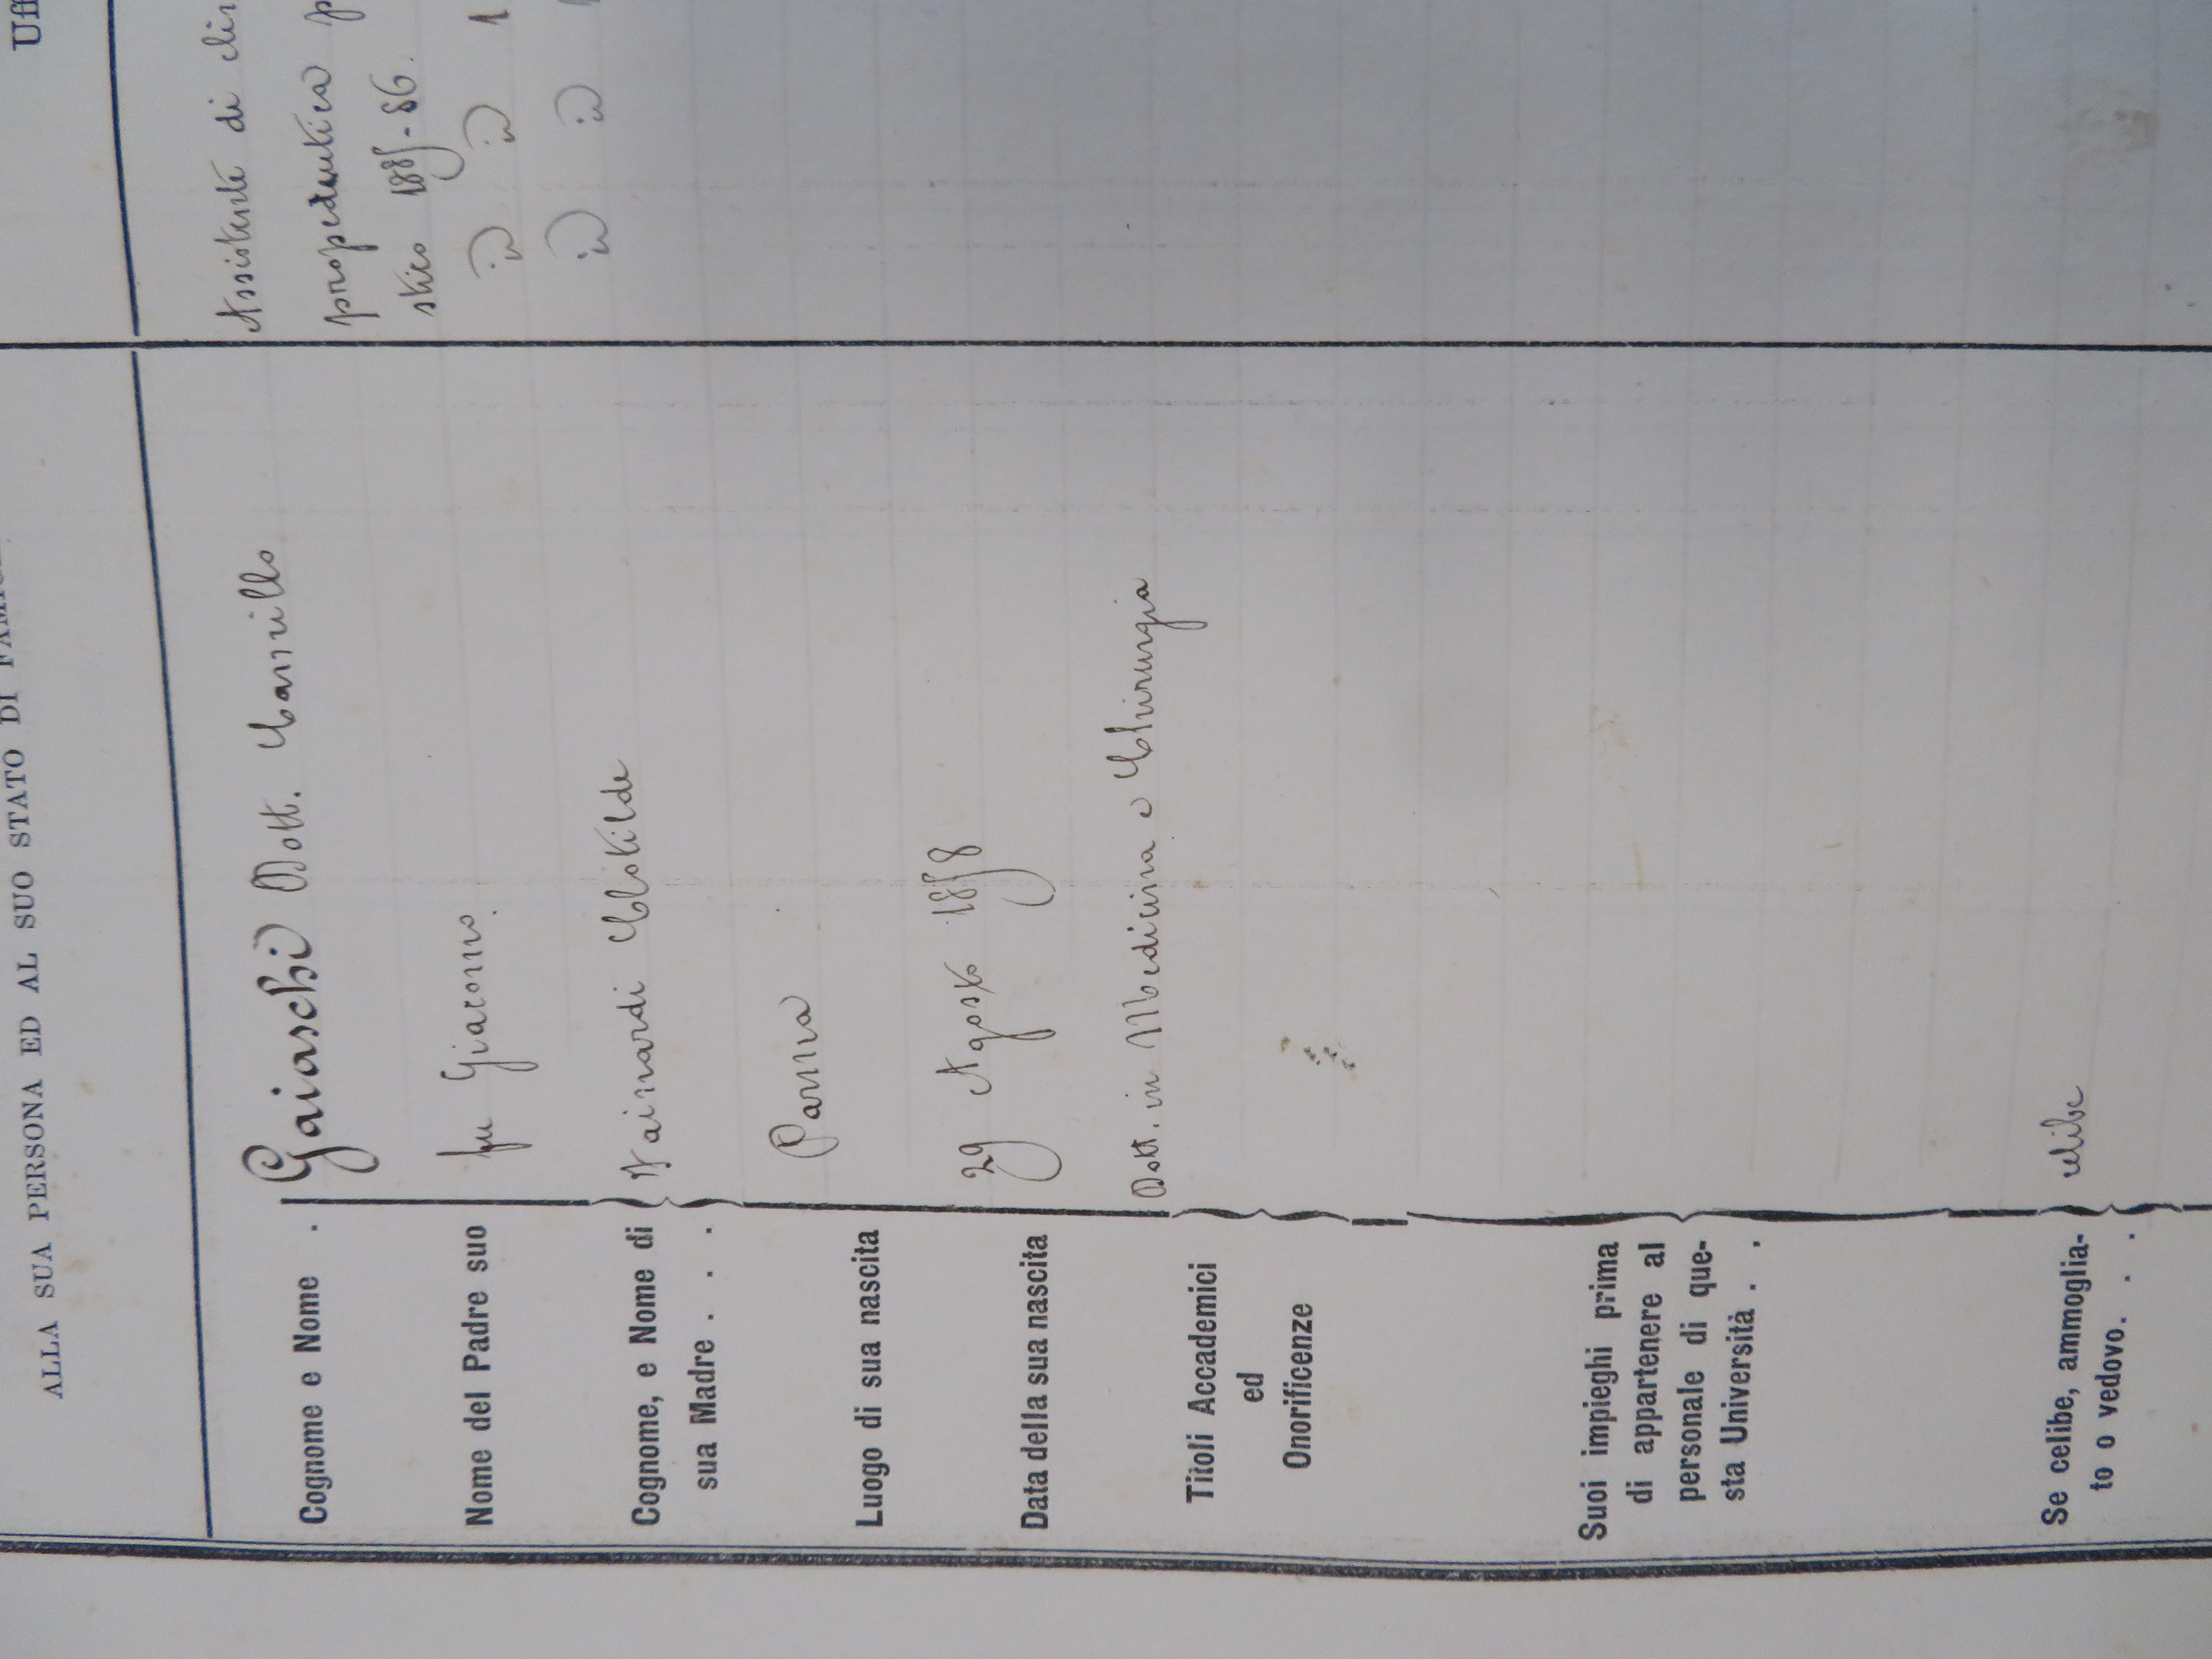 ALLA SUA PERSONA ED AL SUO STATO DI
Cognome e Nome . Gaiaschi Dott. Camillo
Nome del Padre suo fu Giacomo.
Cognome, e Nome di
sua Madre . . . Nainardi Clotilde
Luogo di sua nascita Parma
Data della sua nascita 29 Agosto 1858
Titoli Accademici
ed
Onorificenze
Dott. in Medicina e Chirurgia
Suoi impieghi prima
di appartenere al
personale di que-
sta Università . .
Se celibe, ammoglia-
to o vedovo. . . celibe
Uff
Assistente di clin
propedeutica p
stico 1885-86.
id id 1
id id